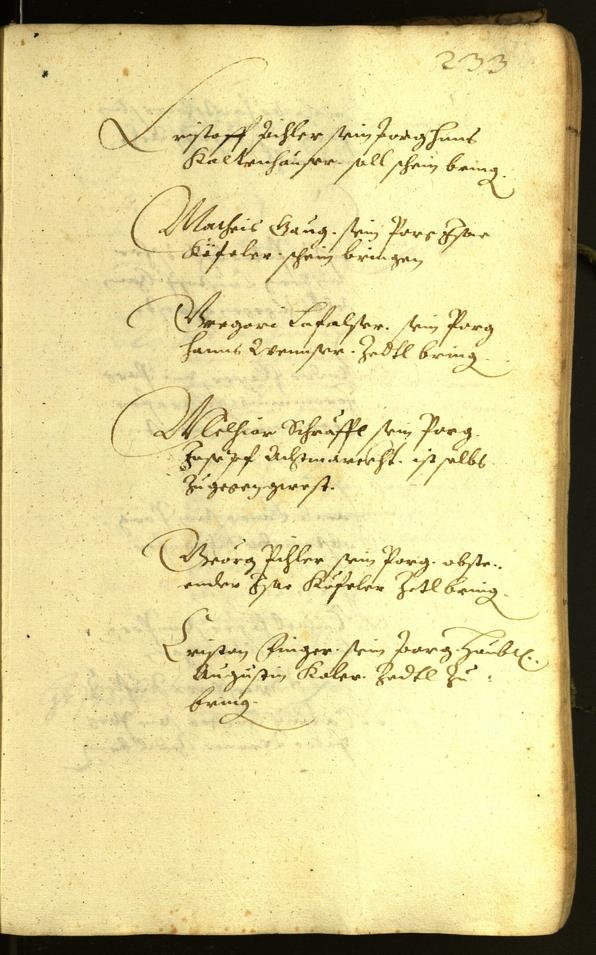 233
Cristoff Pichler sein Porg hans
Kaltenhauser soll schein bring.
Matheis Gaug. sein Porg Isac
Köfeler schein bringen
Gregori Lafalser. sein Porg
hanns Wennser. Zedtl bring.
Melchior Schräffl sein Porg.
Joseph ist selbs
Zugegen gwest.
Georg Pichler sein Porg. obste-
ender Isac Köfeler Zetl bring.
Cristan Pinger sein Porg
Augustin Koler. Zedtl Zu
bring.